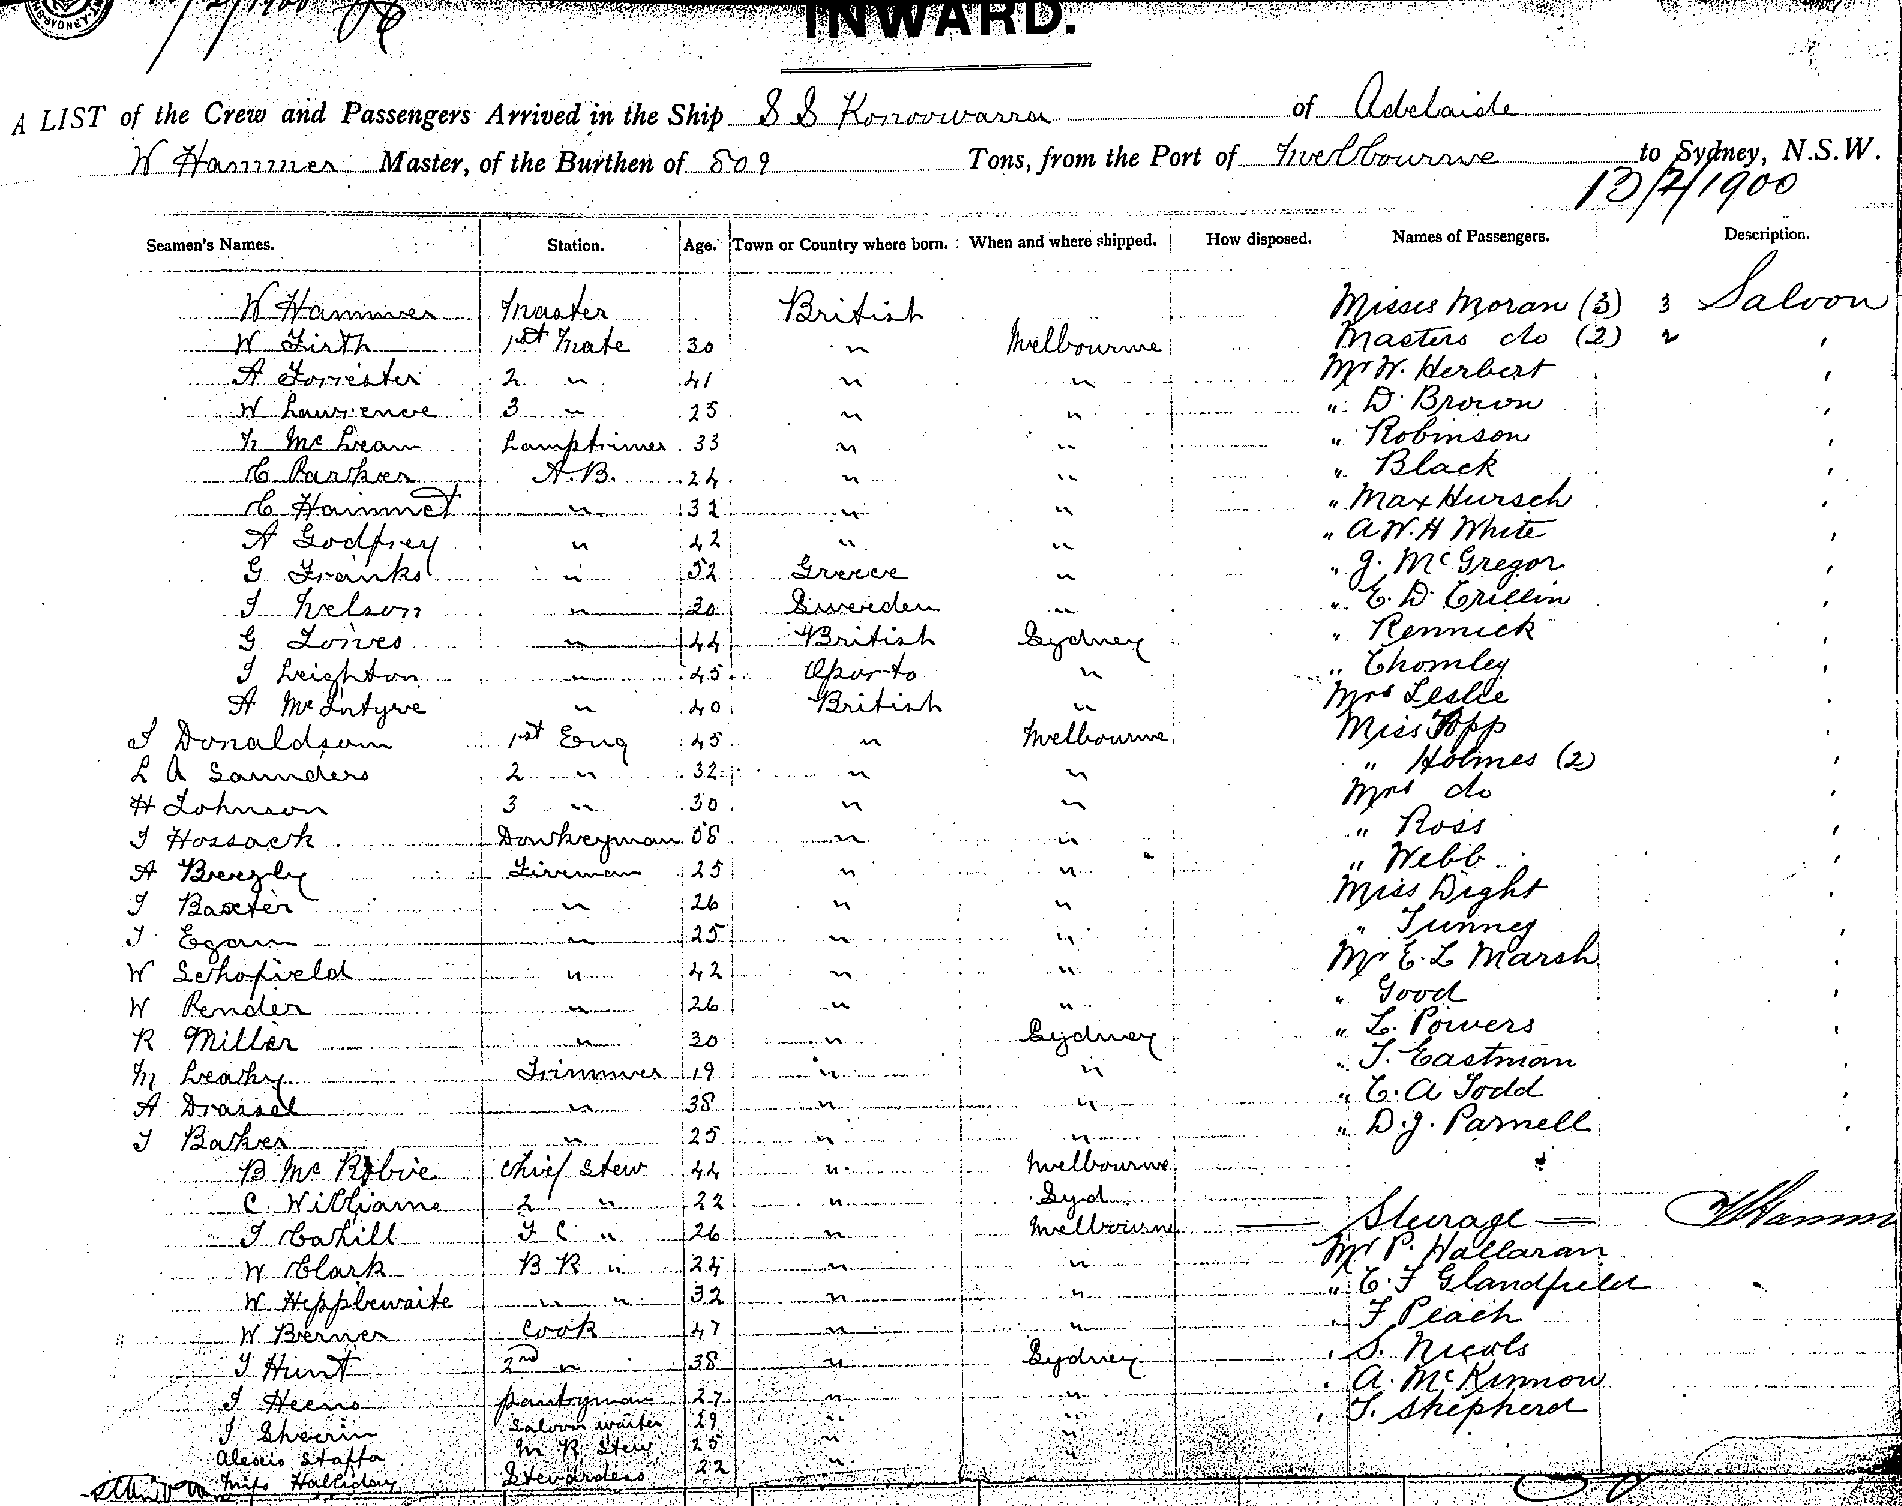 INWARD.
A LIST of the Crew and Passengers Arrived in the Ship S S Konoowarra of Adelaide
W Hammer Master, of the Burthen of 809 Tons, from the Port of Melbourne to Sydney, N.S.W.
13/2/1900
Seamen's Names. Station. Age. Town or Country where born. When and where shipped. How disposed. Names of Passengers. Description.
W Hammer Master British Misses Moran (3) 3 Saloon
W Firth 1st Mate 30 " Melbourne Masters do (2) 2 "
A Forrester 2 " 41 " " Mr W. Herbert "
W Lawrence 3 " 25 " " " D. Brown "
N McLean Lamptrimer 33 " " " Robinson "
C Parker A.B. 24 " " " Black "
C Hammet " 32 " " " Max Hursch "
A Godfrey " 42 " " " A W. H White "
G Franks " 52 Greece " " J. McGregor "
J Nelson " 30 Sweden " " E. D. Crillin "
G Jones " 44 British Sydney " Rennick "
J Leighton " 45 Oporto " " Chomley "
A McIntyre " 40 British " Mrs Leslie "
J Donaldson 1st Eng 45 " Melbourne Miss Topp "
L A Saunders 2 " 32 " " " Holmes (2) "
H Johnson 3 " 30 " " Mrs do "
J Hossack Donkeyman 58 " " " Ross "
A Breezly Fireman 25 " " " Webb "
J Baxter " 26 " " Miss Dight "
J Egan " 25 " " " Tunney "
W Schofield " 42 " " Mr E. L Marsh "
W Render " 26 " " " Good "
R Miller " 30 " Sydney " L. Powers "
M Leahy Trimmer 19 " " " T. Eastman "
A Drassel " 38 " " " C. A Todd "
J Baker " 25 " " " D. J. Parnell "
B McRobie Chief Stew 44 " Melbourne
C Williams 2 " 22 " Syd
J Cahill F C " 26 " Melbourne Sterage W Hammer
W Clark B R " 24 " " Mr P. Hallaran
W Hepplewaite " " 32 " " " C. F Glandfield "
W Berner Cook 47 " " " F Peach
J Hunt 2nd " 38 " Sydney " S. Nicols
J Heeno Pantryman 27 " " " A. McKinnon
J Sheerin Saloon waiter 29 " " " T. Shepherd
Alexis Staffa M R Stew 25 " "
Miss Halliday Stewardess 22 "